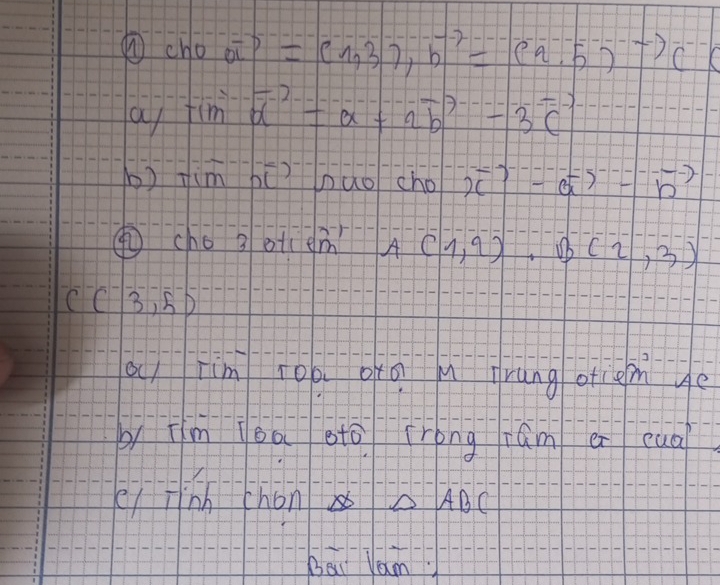 ① cho a⃗ = (1,3), b⃗ = (2.5) → c (
a/ Tìm d⃗ = a + 2b⃗ - 3c⃗
b) Tìm x⃗ sao cho x⃗ - a⃗ - b⃗
② cho 3 điểm A (1,2). B (2,3)
C(3,5)
a/ Tìm Toạ độ M Trung điểm AC
b/ Tìm Toạ độ Trọng Tâm G của
c/ Tính △ ABC
Bài làm: